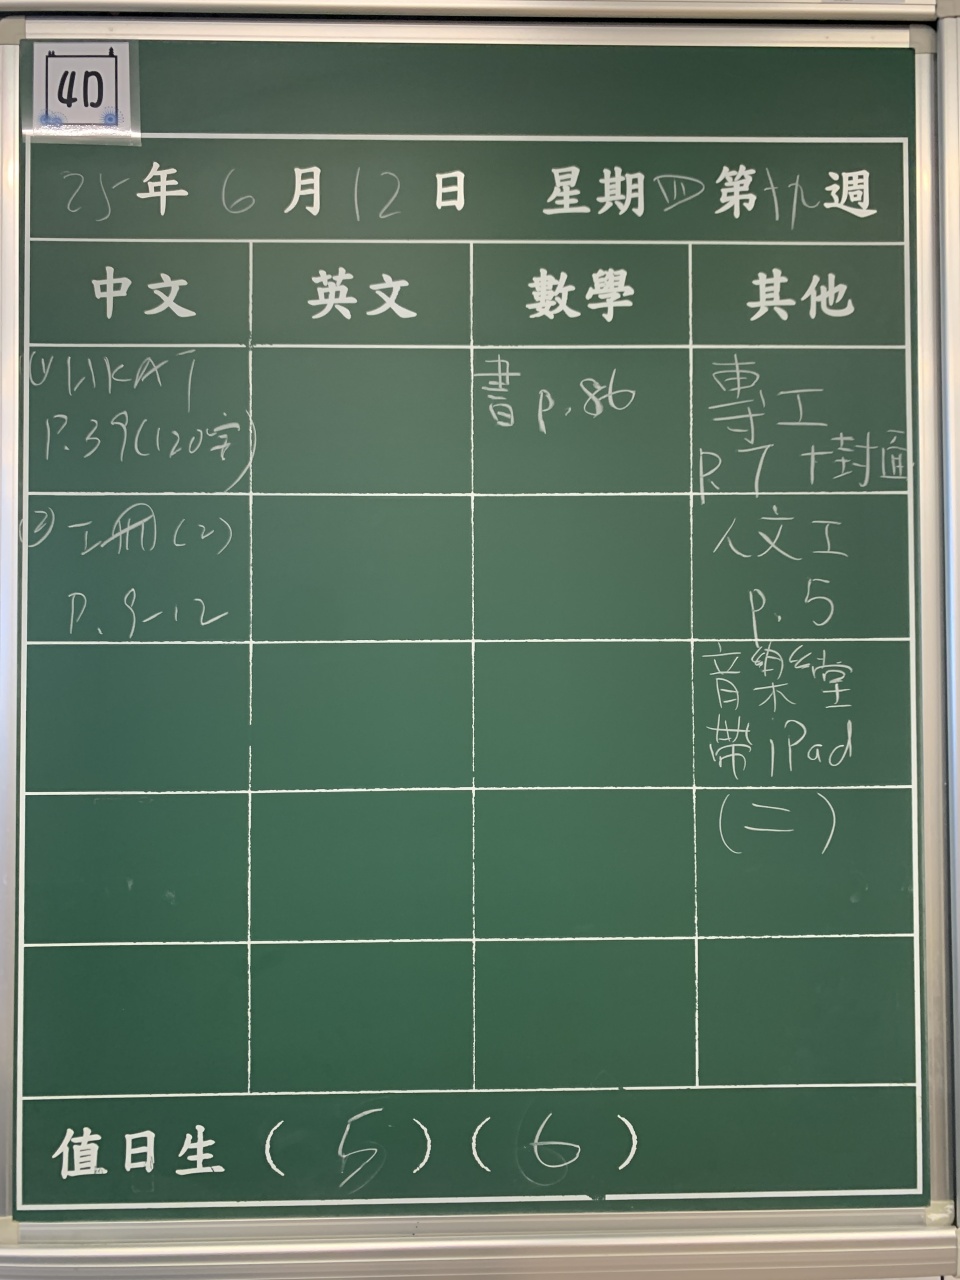 4D
25年6月12日 星期四第十九週
中文 英文 數學 其他
(1) LIKAT
P.39(120字)
書 p.86
專工
P.7 + 封通
② 工冊(2)
P.9-12
人文工
p.5
音樂堂
帶iPad
(二)
值日生(5)(6)